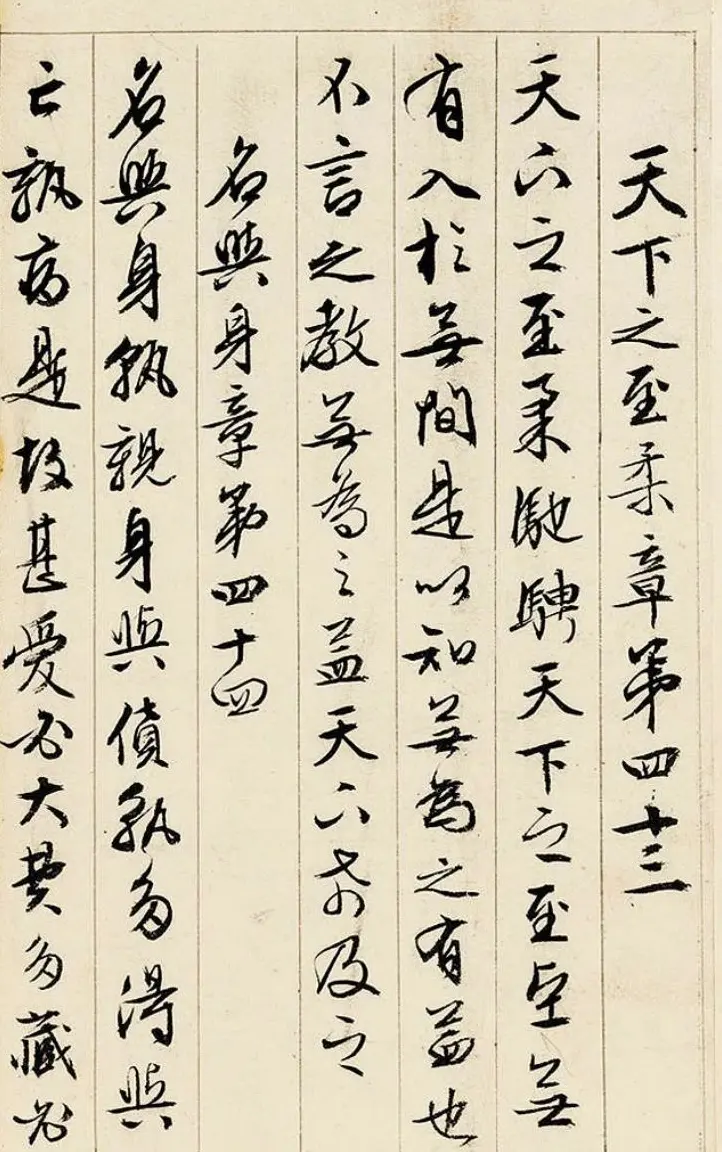 天下之至柔章第四十三
天下之至柔馳騁天下之至堅無
有入於無間是以知無為之有益也
不言之教無為之益天下希及之
名與身章第四十四
名與身孰親身與貨孰多得與
亡孰病是故甚愛必大費多藏必